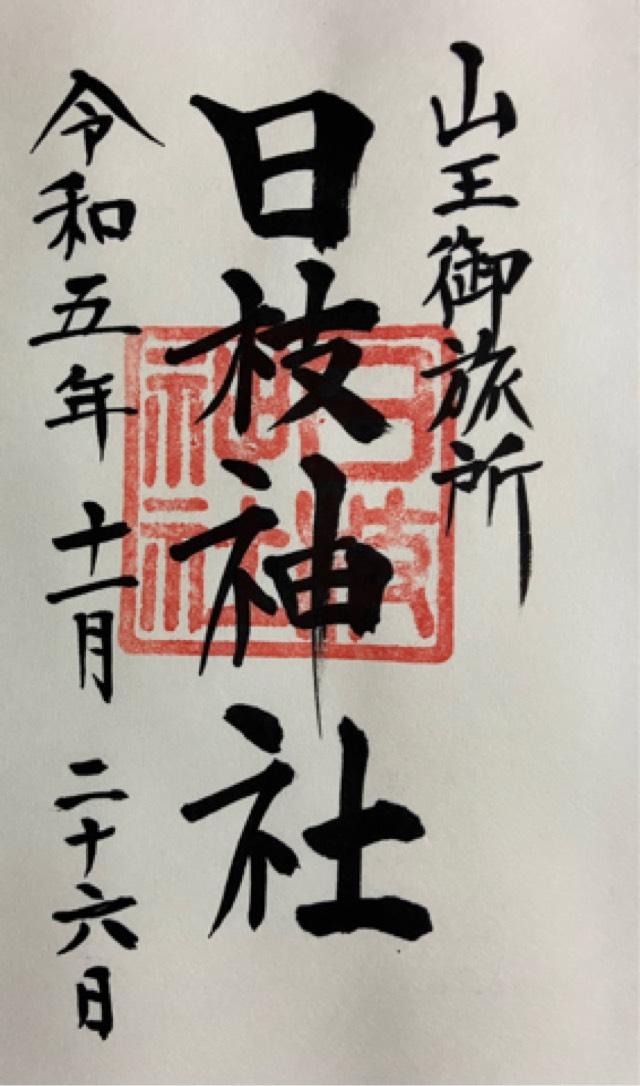 山王御旅所
日枝神社
日枝神社
令和五年十一月二十六日